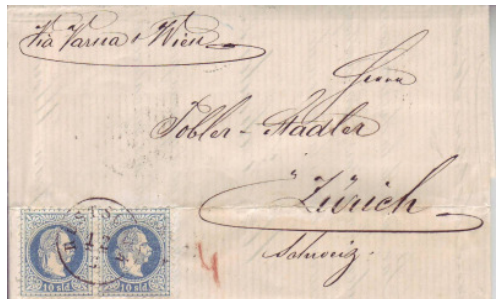 Via Varna & Wien
Herrn
Tobler-Stadler
Zürich
Schweiz.
10 sld 10 sld
4